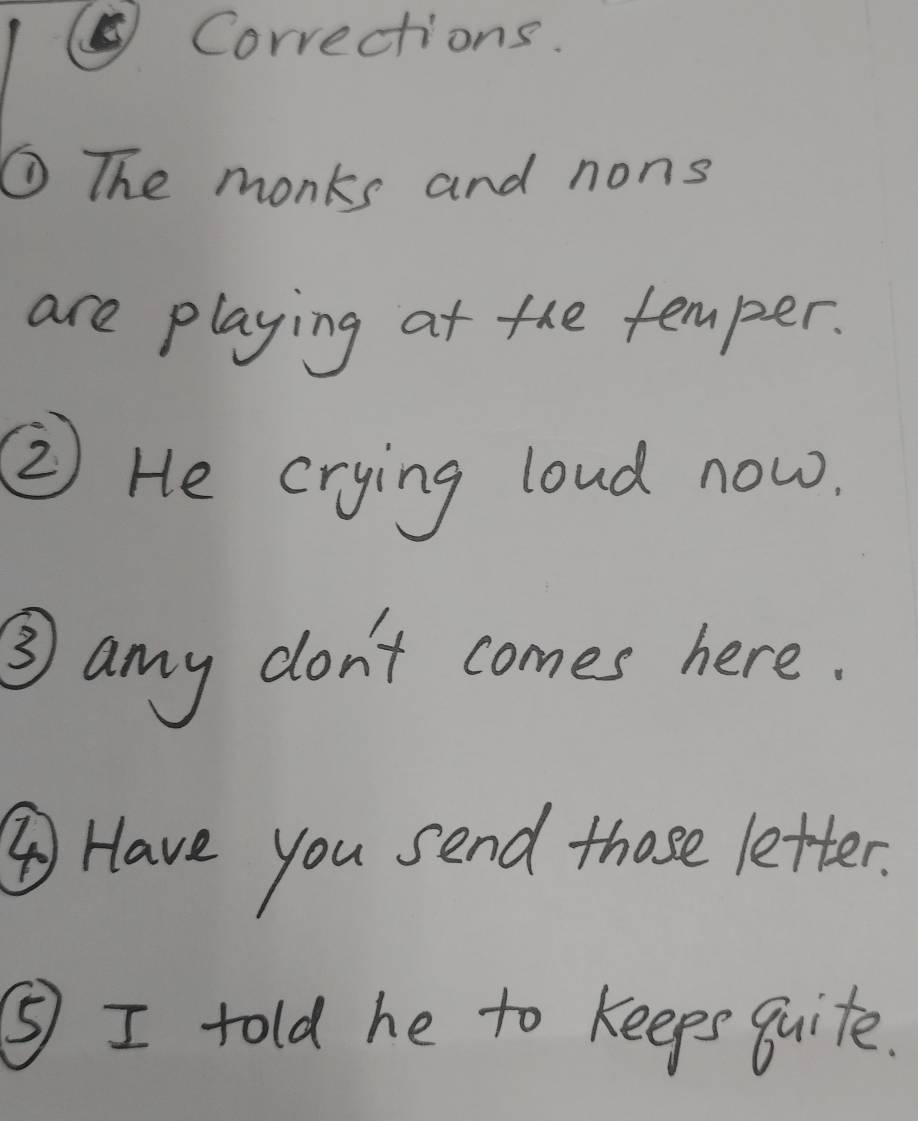 Corrections.
① The monks and nons
are playing at the temper.
② He crying loud now.
③ amy don't comes here.
④ Have you send those letter.
⑤ I told he to keeps quite.